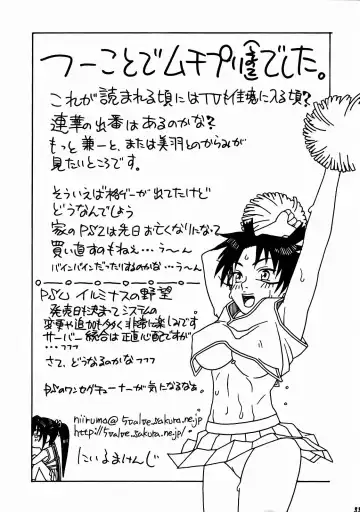 つーことでムチプリ塗でした。
これが読まれる頃にはTVも佳境に入る頃?
連華の出番はあるのかな?
もっと兼一と、または美羽とのからみが
見たいところです。
そういえば格ゲーが出てたけど
どうなんでしょう
家のPS2は先日お亡くなりになって
買い直すのもねぇ…う〜ん
バインバインだったりするのかな…う〜ん
PSU イルミナスの野望
発売日も決まってシステムの
変更や追加も多く非常に楽しみです
サーバー統合は正直心配ですが
…ううう
さて、どうなるのかなううう
PSPのワンセグチューナーが気になるなぁ。
niiruma@5val.sakura.ne.jp
にいるまけんじ